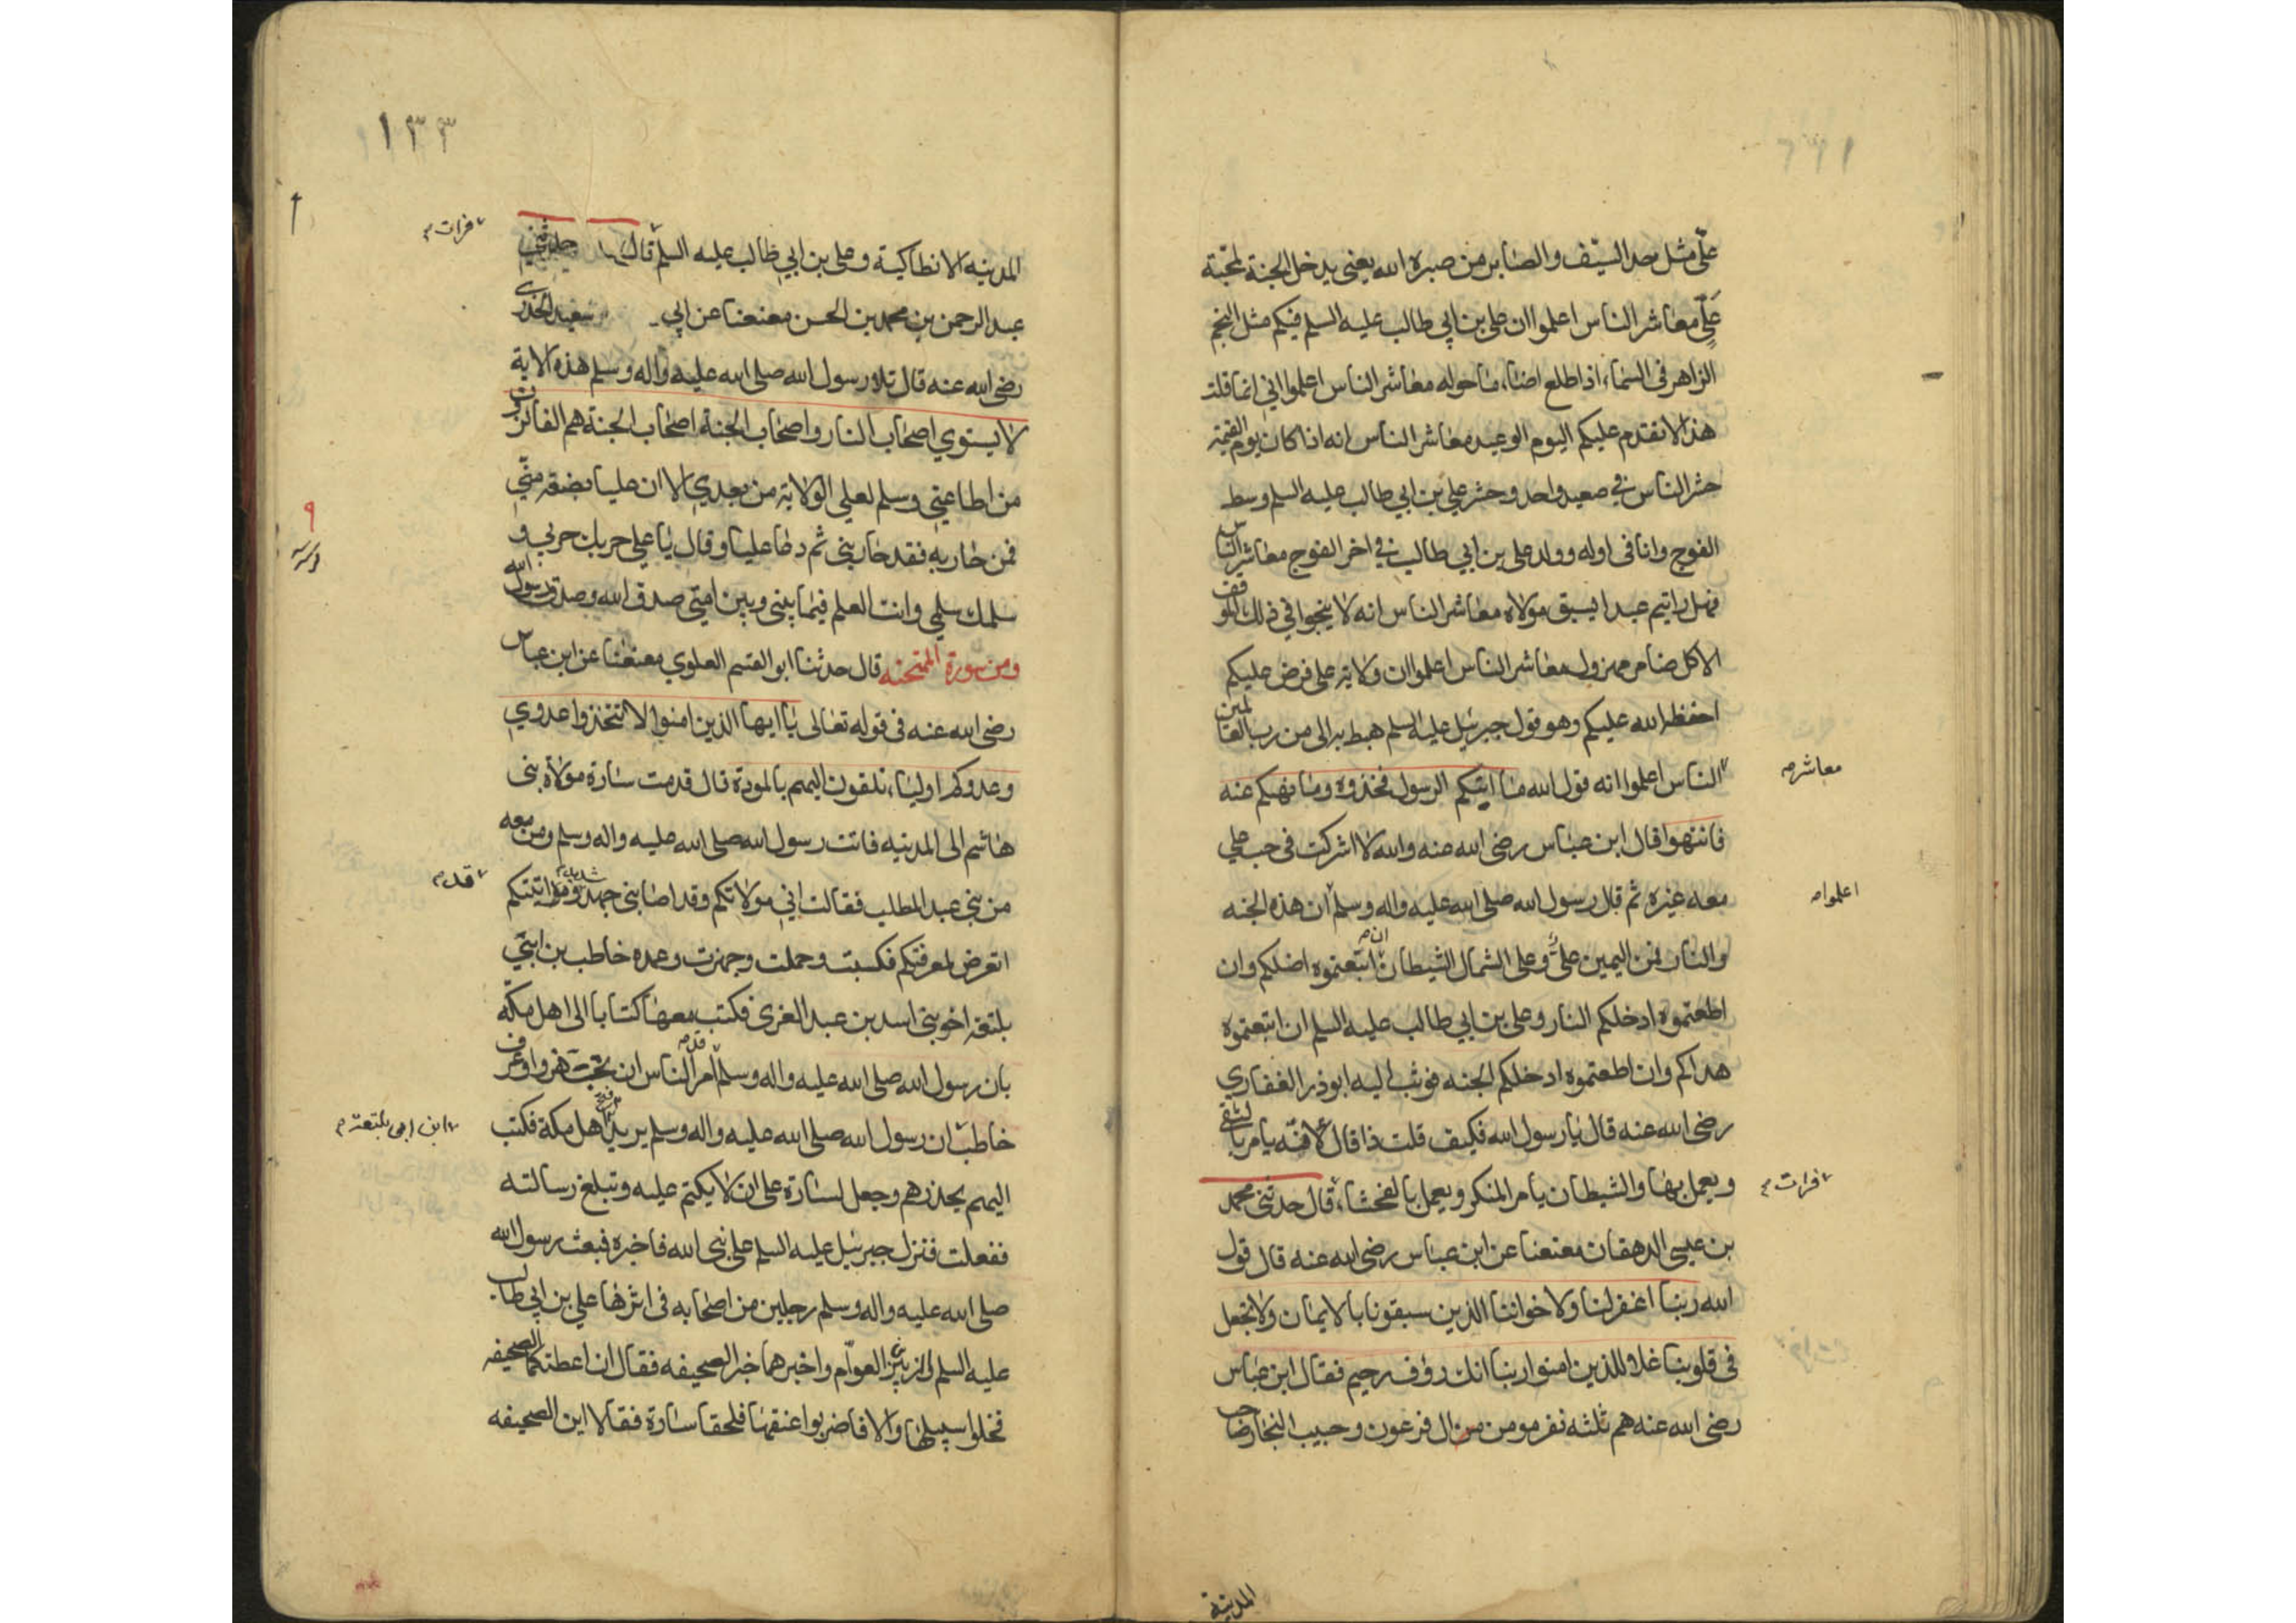 علّى مثل حد السيف والصابر من صبره الله يعنى يدخل الجنة بمحبة
علّى معاشر الناس اعلموا ان على بن ابي طالب عليه السلم فيكم مثل النجم
الزاهر فى السماء اذا طلع اضاء ما حوله معاشر الناس اعلموا اني انما قلت
هذا لا تقدم عليكم اليوم الوعيد معاشر الناس انه اذا كان يوم القيمة
حشر الناس في صعيد واحد وحشر علي بن ابي طالب عليه السلم وسط
الفوج وانا فى اوله وولد على بن ابي طالب في اخر الفوج معاشر الناس
فهل رايتم عبدا يسبق مولاه معاشر الناس انه لا ينجوا في ذلك الموقف
الا كل ضامر مهزول معاشر الناس اعلموا ان ولاية على فرض عليكم
احفظ الله عليكم وهو قول جبرئيل عليه السلم هبط به الى من رب العالمين
معاشر
الناس اعلموا انه قول الله ما اتيكم الرسول فخذوه وما نهيكم عنه
فانتهوا قال ابن عباس رضى الله عنه والله لا اشركت فى حب على
معه غيره ثم قال رسول الله صلى الله عليه واله وسلم ان هذه الجنه
اعلموا
والنار فمن اليمين علىّ وعلى الشمال الشيطان ان اتبعتموه اضلكم وان
اطعتموه ادخلكم النار وعلى بن ابي طالب عليه السلم ان اتبعتموه
هداكم وان اطعتموه ادخلكم الجنه فوثب اليه ابوذر الغفاري
رضى الله عنه قال يا رسول الله فكيف قلت ذا قال لانّه يامر بالتقى
ويعمل بها والشيطان يامر المنكر ويعمل بالفحشاء قال حدثنى محمد
فرات
بن عيسى الدهقان معنعنا عن ابن عباس رضى الله عنه قال قول
الله ربنا اغفر لنا ولاخواننا الذين سبقونا بالايمان ولا تجعل
فى قلوبنا غلا للذين امنوا ربنا انك رؤف رحيم فقال ابن عباس
رضى الله عنه هم ثلثه نفر مومن من ال فرعون وحبيب النجار صاحب
المدينة
١٣٣
المدينه الانطاكية وعلى بن ابي طالب عليه السلم قال حدثنى
فرات
عبد الرحمن بن محمد بن الحسن معنعنا عن ابي سعيد الخدرى
رضى الله عنه قال تلا رسول الله صلى الله عليه واله وسلم هذه الاية
لا يستوي اصحاب النار واصحاب الجنة اصحاب الجنة هم الفائزون
من اطاعني وسلم لعلي الولاية من بعدي الا ان عليا بضعة منّي
فمن حاربه فقد حاربنى ثم دعا عليا وقال يا على حربك حربي و
سلمك سلمي وانت العلم فيما بينى وبين امتى صدق الله وصدق رسول الله
ومن سورة الممتحنه قال حدثنا ابو القسم العلوي معنعنا عن ابن عباس
رضى الله عنه فى قوله تعالى يا ايها الذين امنوا لا تتخذوا عدوي
وعدوكم اولياء تلقون اليهم بالمودة قال قدمت سارة مولاة بنى
هاشم الى المدينه فاتت رسول الله صلى الله عليه واله وسلم ومن معه
من بني عبد المطلب فقالت انى مولاتكم وقد اصابنى جهد شديد اتيتكم
قد
اتعرض لمعرفتكم فكسبت وحملت وجهزت وعمده خاطب بن ابتي
بلتعه اخو بنى اسد بن عبد الغرى فكتب معها كتابا الى اهل مكّه
بان رسول الله صلى الله عليه واله وسلم قد امر الناس ان وعرف
خاطب ان رسول الله صلى الله عليه واله وسلم يريد اهل مكة فكتب
ابن ابى بلتعه
اليهم يحذرهم وجعل لسارة على ان لا يكتم عليه وتبلغ رسالته
ففعلت فنزل جبرئيل عليه السلم على نبى الله فاخبره فبعث رسول الله
صلى الله عليه واله وسلم رجلين من اصحابه فى اثرها علي بن ابي طالب
عليه السلم والزبير بن العوام واخبرهما خبر الصحيفه فقال ان اعطتكما الصحيفه
فخلوا سبيلها والا فاضربوا عنقها فلحقا سارة فقالا اين الصحيفه